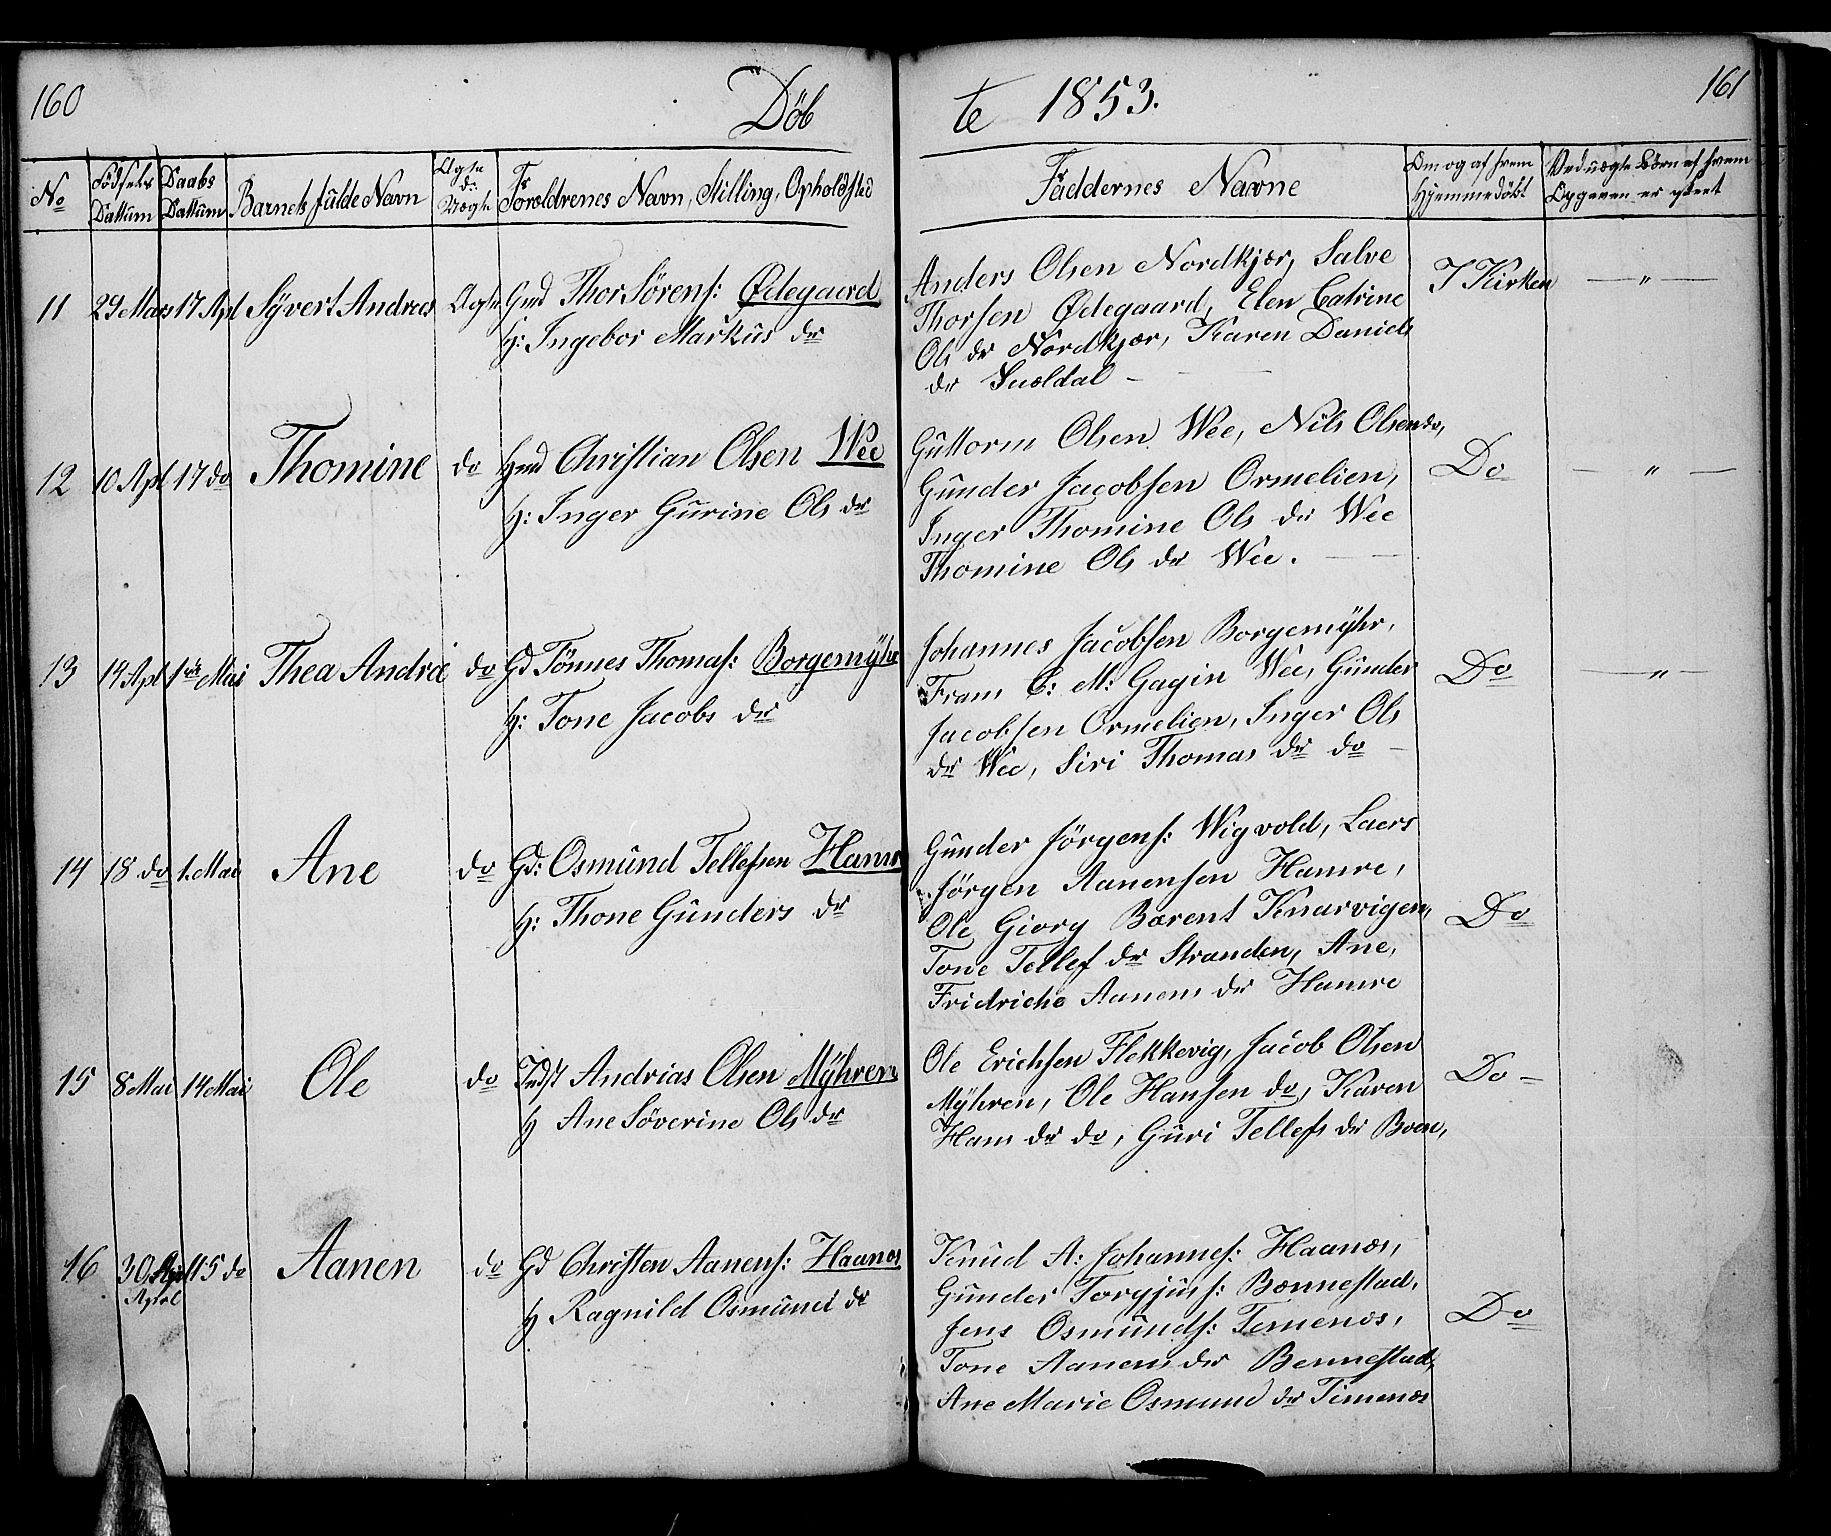 160
Döb
te 1853.
161
No
Födsels Dattum
Daabs Dattum
Barnets fulde Navn
Ægte do Uægte
Forældrenes Navn, Stilling, Opholdsted
Faddernes Navne
Om og af hvem Hjemmedöbt
Ved uægte Börn af hvem Opgaven er skeet
11 29 Mars 17 Apl Syvert Andreas Ægte Gmd Thor Sörens: Ødegaard
H: Ingebor Markus dr
Anders Olsen Nordkjær, Salve
Thorsen Ødegaard, Elen Catrine
Ols dr Nordkjær, Karen Daniels
dr Snældal -
I Kirken
— " —
12 10 Apl 17 do Thomine do Hmd Christian Olsen Wee
H: Inger Gurine Ols dr
Guttorm Olsen Wee, Nils Olsen do,
Gunder Jacobsen Ormelien,
Inger Thomine Ols dr Wee
Thomine Ols dr Wee.
Do
— " —
13 14 Apl 1ste Mai Thea Andrea do Gd Tönnes Thomas: Borgemyhr
H: Tone Jacobs dr
Johannes Jacobsen Borgemyhr,
Frans C: M: Gagin Wee, Gunder
Jacobsen Ormelien, Inger Ols
dr Wee, Siri Thomas dr do -
Do
— " —
14 18 do 1. Mai Ane do Gd: Osmund Tellefsen Hamre
H: Thone Gunders dr
Gunder Jörgens: Wigvold, Laers
Jörgen Aanensen Hamre,
Ole Giorg Bærent Knarvigen,
Tone Tellef dr Stranden, Ane,
Fridriche Aanens dr Hamre
Do
15 8 Mai 14 Mai Ole do Indst Andrias Olsen Myhren
H Ane Söverine Ols dr
Ole Erichsen Flekkevig, Jacob Olsen
Myhren, Ole Hansen do, Karen
Hans dr do, Guri Tellefs dr Boen,
Do -
16 30 April 15 do Aanen do Gd Christen Aanens: Haanes
H Ragnild Osmund dr
Knud A: Johannes: Haanæs,
Gunder Torgjus: Bænnestad,
Jens Osmunds: Temenæs,
Tone Aanens dr Bennestad,
Ane Marie Osmund dr Timenæs
Do